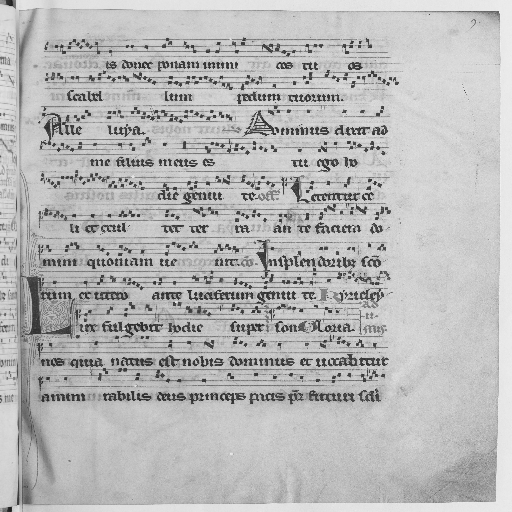 is donec ponam inimi cos tu os
scabel lum pedum tuorum.
Alle luya. Dominus dixit ad
me filius meus es tu ego ho
die genui te. off. Letentur ce
li et exul tet ter ra an te faciem do
mini quoniam ue nit. co. In splendoribz sco
rum ex utero ante luciferum genui te
Lux fulgebit hodie super nos Gloria.
nos quia natus est nobis dominus et uocabitur
admi rabilis deus princeps pacis pr futuri scli